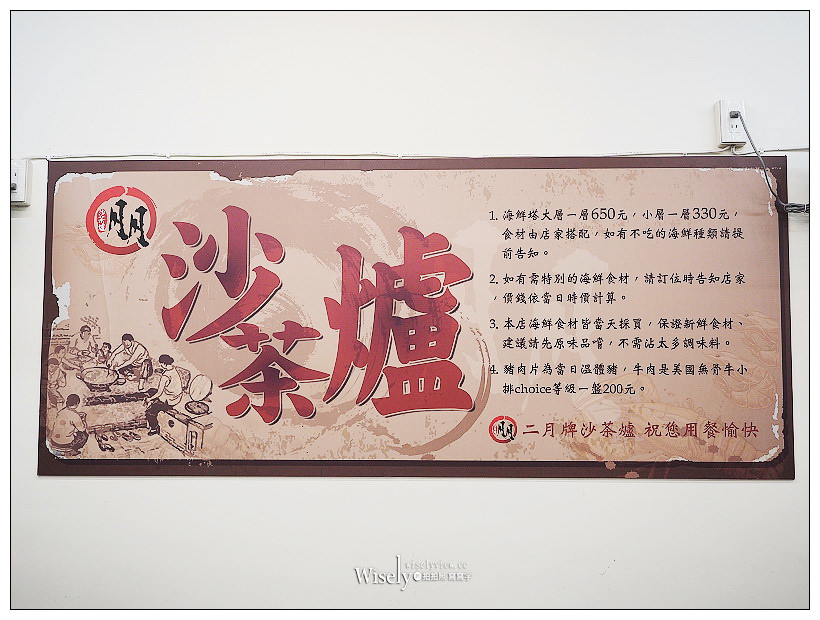 沙茶爐
1. 海鮮塔大層一層650元，小層一層330元，
食材由店家搭配，如有不吃的海鮮種類請提
前告知。
2. 如有需特別的海鮮食材，請訂位時告知店家
，價錢依當日時價計算。
3. 本店海鮮食材皆當天採買，保證新鮮食材、
建議請先原味品嚐，不需沾太多調味料。
4. 豬肉片為當日溫體豬，牛肉是美國無骨牛小
排choice等級一盤200元。
二月牌沙茶爐 祝您用餐愉快
wiselyview.cc
Wisely 拍拍照寫寫字